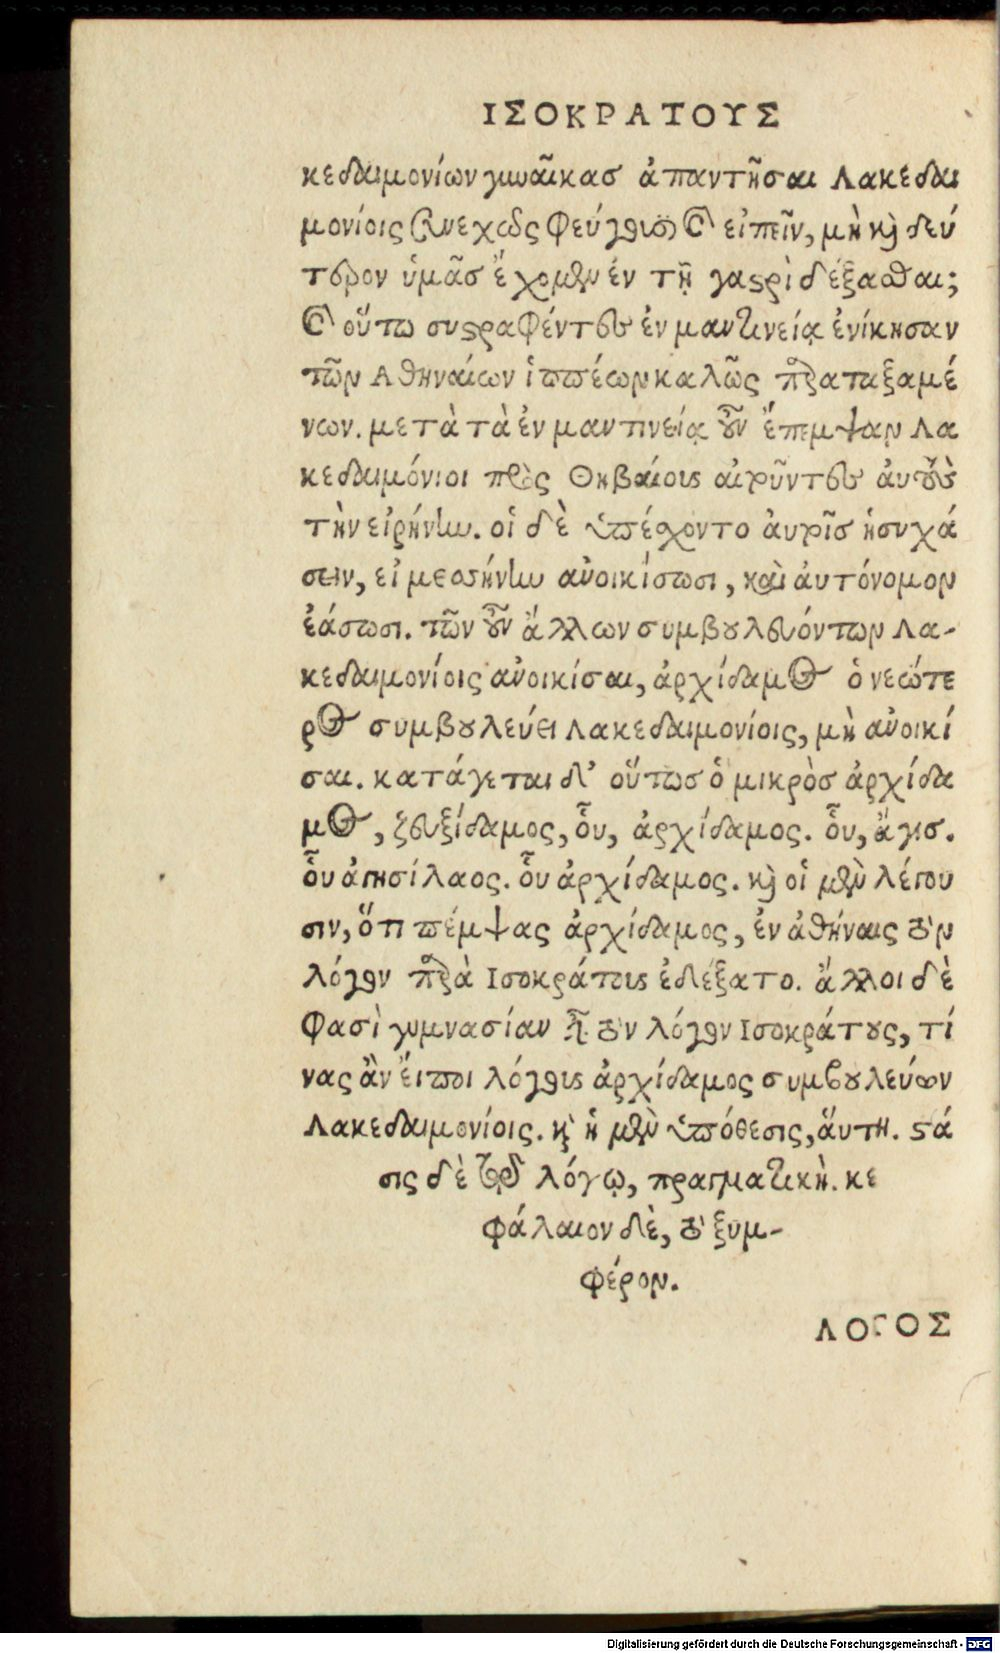 ΙΣΟΚΡΑΤΟΥΣ
κεδαιμονίων γυναῖκας ἀπαντῆσαι Λακεδαι
μονίοις συνεχῶς φεύγουσι, καὶ εἰπεῖν, μὴ καὶ δεύ
τερον ὑμᾶς ἔχομεν ἐν τῇ γαστρὶ δέξασθαι;
καὶ οὕτω συστραφέντες ἐν μαντινείᾳ ἐνίκησαν
τῶν Αθηναίων ἱππέων καλῶς παραταξαμέ
νων. μετὰ τὰ ἐν μαντινείᾳ οὖν ἔπεμψαν Λα
κεδαιμόνιοι πρὸς Θηβαίους αἰροῦντες ἀυτοὺς
τὴν εἰρήνην. οἱ δὲ ὑπέσχοντο ἀυτοῖς ἡσυχά
σειν, εἰ μεσσήνην ἀνοικίσωσι, καὶ ἀυτόνομον
ἐάσωσι. τῶν οὖν ἄλλων συμβουλευόντων Λα-
κεδαιμονίοις ἀνοικίσαι, ἀρχίδαμος ὁ νεώτε
ρος συμβουλεύει Λακεδαιμονίοις, μὴ ἀνοικί
σαι. κατάγεται δ' οὕτως ὁ μικρὸς ἀρχίδα
μος, ζευξίδαμος, οὗ, ἀρχίδαμος. οὗ, ἄγις.
οὗ ἀγησίλαος. οὗ ἀρχίδαμος. καὶ οἱ μὲν λέγου
σιν, ὅτι πέμψας ἀρχίδαμος, ἐν ἀθήναις τὸν
λόγον παρὰ Ισοκράτους ἐδέξατο. ἄλλοι δὲ
φασὶ γυμνασίαν εἶναι τὸν λόγον Ισοκράτους, τί
νας ἂν ἔιποι λόγους ἀρχίδαμος συμβουλεύων
Λακεδαιμονίοις. καὶ ἡ μὲν ὑπόθεσις, ἅυτη. στά
σις δὲ τοῦ λόγου, πραγματικὴ. κε
φάλαιον δὲ, τὸ ξυμ-
φέρον.
ΛΟΓΟΣ
Digitalisierung gefördert durch die Deutsche Forschungsgemeinschaft - DFG